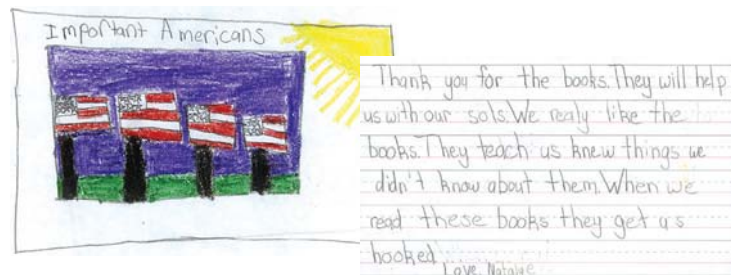 Important Americans
Thank you for the books. They will help
us with our sols. We realy like the
books. They teach us knew things we
didn't know about them. When we
read these books they get us
hooked
Love, Natalie